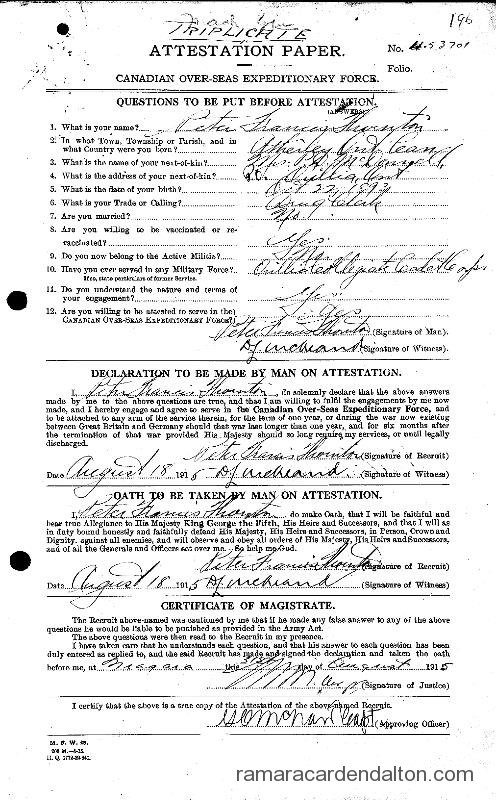 196
TRIPLICATE
ATTESTATION PAPER.
No.
Folio.
CANADIAN OVER-SEAS EXPEDITIONARY FORCE.
QUESTIONS TO BE PUT BEFORE ATTESTATION.
(ANSWERS)
1. What is your name? Peter Francis Thornton
2. In what Town, Township or Parish, and in
what Country were you born? Atherley Ont
3. What is the name of your next-of-kin? Mrs.
4. What is the address of your next-of-kin? Orillia, Ont
5. What is the date of your birth? Oct 22, 1893
6. What is your Trade or Calling? Drug Clerk
7. Are you married? No
8. Are you willing to be vaccinated or re-
vaccinated? Yes
9. Do you now belong to the Active Militia?
10. Have you ever served in any Military Force?
If so, state particulars of former Service.
11. Do you understand the nature and terms of
your engagement? Yes
12. Are you willing to be attested to serve in the
CANADIAN OVER-SEAS EXPEDITIONARY FORCE? Yes
Peter Francis Thornton (Signature of Man).
(Signature of Witness).
DECLARATION TO BE MADE BY MAN ON ATTESTATION.
I, Peter Francis Thornton, do solemnly declare that the above answers
made by me to the above questions are true, and that I am willing to fulfil the engagements by me now
made, and I hereby engage and agree to serve in the Canadian Over-Seas Expeditionary Force, and
to be attached to any arm of the service therein, for the term of one year, or during the war now existing
between Great Britain and Germany should that war last longer than one year, and for six months after
the termination of that war provided His Majesty should so long require my services, or until legally
discharged.
Peter Francis Thornton (Signature of Recruit)
Date August 18 1915 (Signature of Witness)
OATH TO BE TAKEN BY MAN ON ATTESTATION.
I, Peter Francis Thornton, do make Oath, that I will be faithful and
bear true Allegiance to His Majesty King George the Fifth, His Heirs and Successors, and that I will as
in duty bound honestly and faithfully defend His Majesty, His Heirs and Successors, in Person, Crown and
Dignity, against all enemies, and will observe and obey all orders of His Majesty, His Heirs and Successors,
and of all the Generals and Officers set over me. So help me God.
Peter Francis Thornton (Signature of Recruit)
Date August 18 1915 (Signature of Witness)
CERTIFICATE OF MAGISTRATE.
The Recruit above-named was cautioned by me that if he made any false answer to any of the above
questions he would be liable to be punished as provided in the Army Act.
The above questions were then read to the Recruit in my presence.
I have taken care that he understands each question, and that his answer to each question has been
duly entered as replied to, and the said Recruit has made and signed the declaration and taken the oath
before me, at Niagara this day of August 1915
(Signature of Justice)
I certify that the above is a true copy of the Attestation of the above-named Recruit.
(Approving Officer)
M. F. W. 23.
ramaracardendalton.com